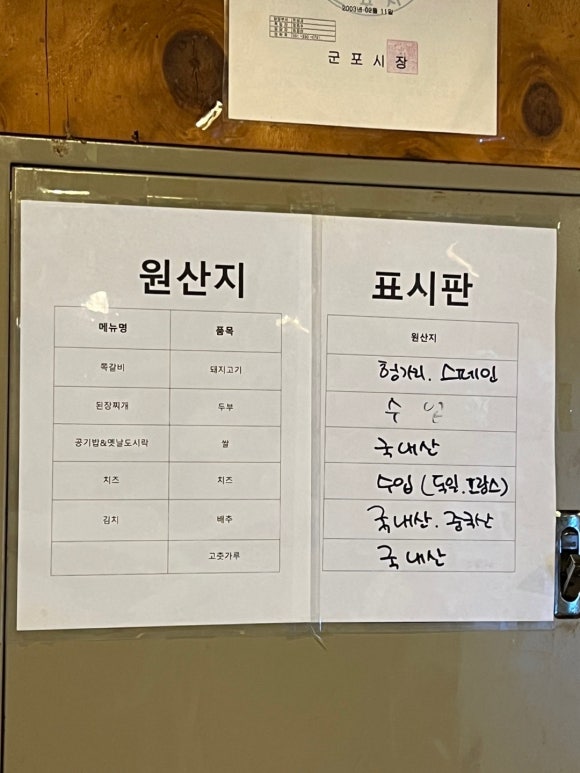 2003년 02월 11일
군포시장
원산지 표시판
메뉴명 품목 원산지
쪽갈비 돼지고기 헝가리. 스페인
된장찌개 두부 수입
공기밥&옛날도시락 쌀 국내산
치즈 치즈 수입 (독일.프랑스)
김치 배추 국내산. 중국산
고춧가루 국내산